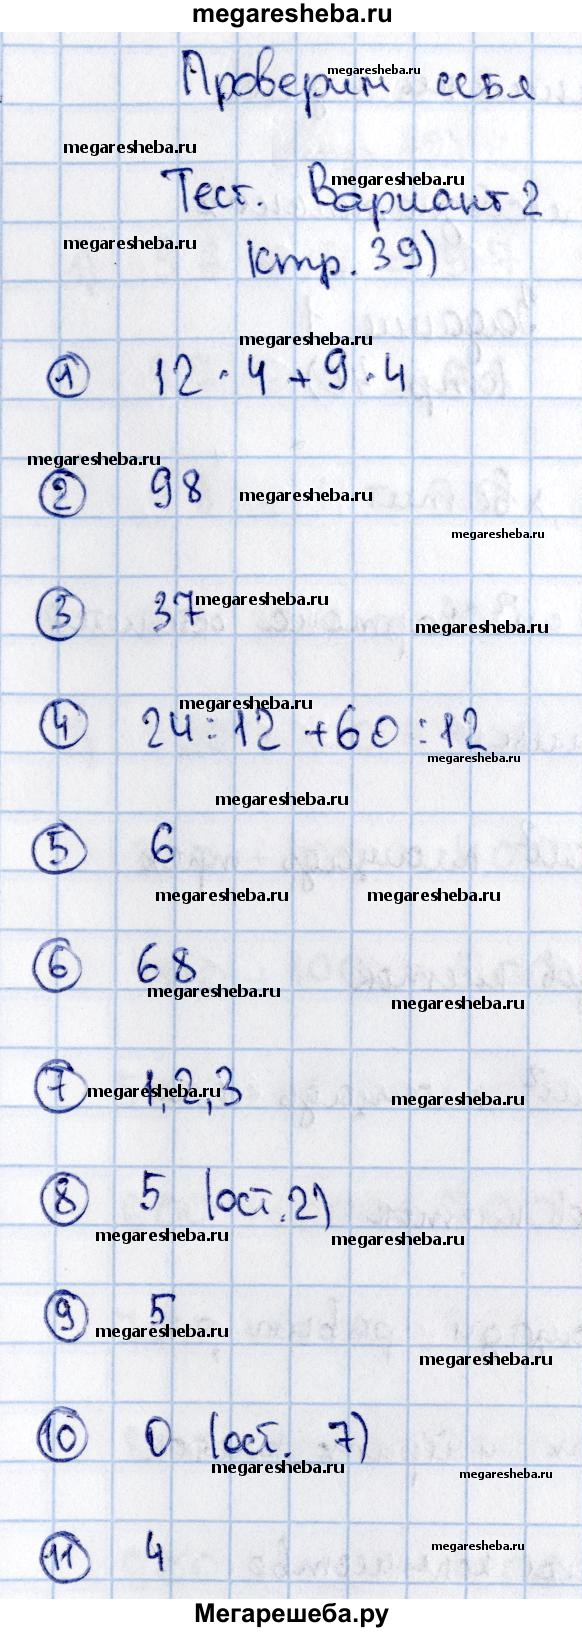 megaresheba.ru
Проверим себя
megaresheba.ru
megaresheba.ru
Тест. Вариант 2
megaresheba.ru
megaresheba.ru
стр. 39)
megaresheba.ru
① 12 · 4 + 9 · 4
megaresheba.ru
② 98
megaresheba.ru
megaresheba.ru
③ 37
megaresheba.ru
megaresheba.ru
megaresheba.ru
④ 24 : 12 + 60 : 12
megaresheba.ru
megaresheba.ru
⑤ 6
megaresheba.ru megaresheba.ru
⑥ 68
megaresheba.ru
megaresheba.ru
⑦ 1, 2, 3
megaresheba.ru
megaresheba.ru
⑧ 5 (ост. 2)
megaresheba.ru
megaresheba.ru
⑨ 5
megaresheba.ru
megaresheba.ru
⑩ 0 (ост. 7)
megaresheba.ru
megaresheba.ru
⑪ 4
megaresheba.ru
Мегарешеба.ру